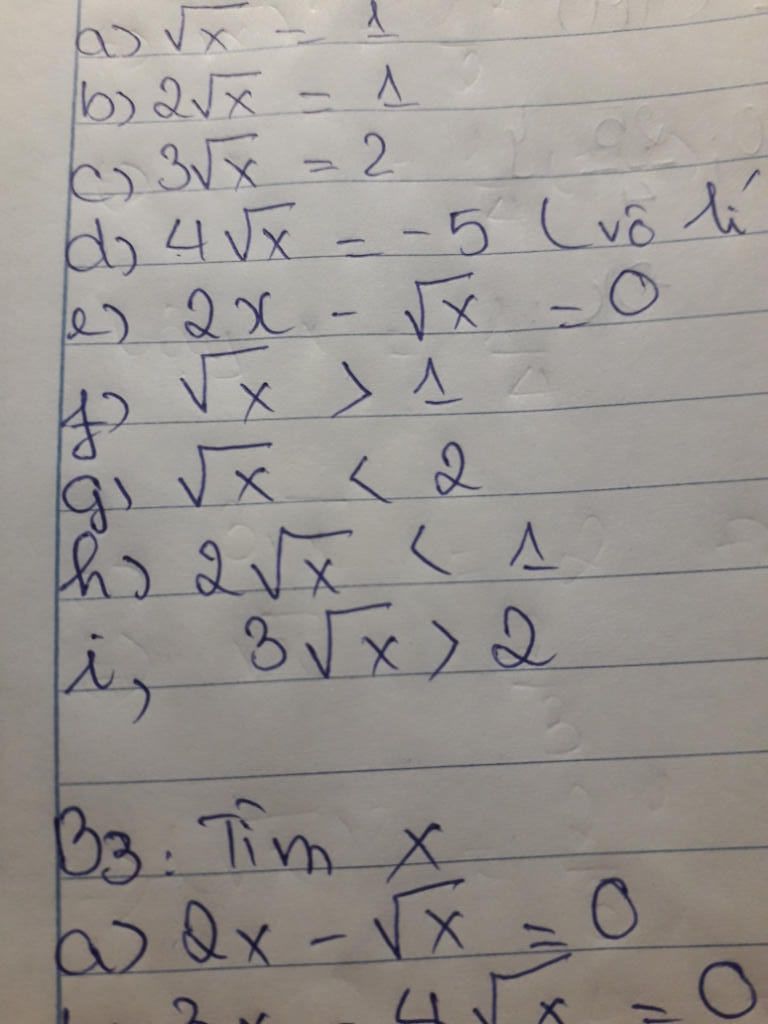 a) √x = 1
b) 2√x = 1
c) 3√x = 2
d) 4√x = -5 (vô lí
e) 2x - √x = 0
f) √x > 1
g) √x < 2
h) 2√x < 1
i, 3√x > 2
B3: Tìm x
a) 2x - √x = 0
3x - 4√x = 0